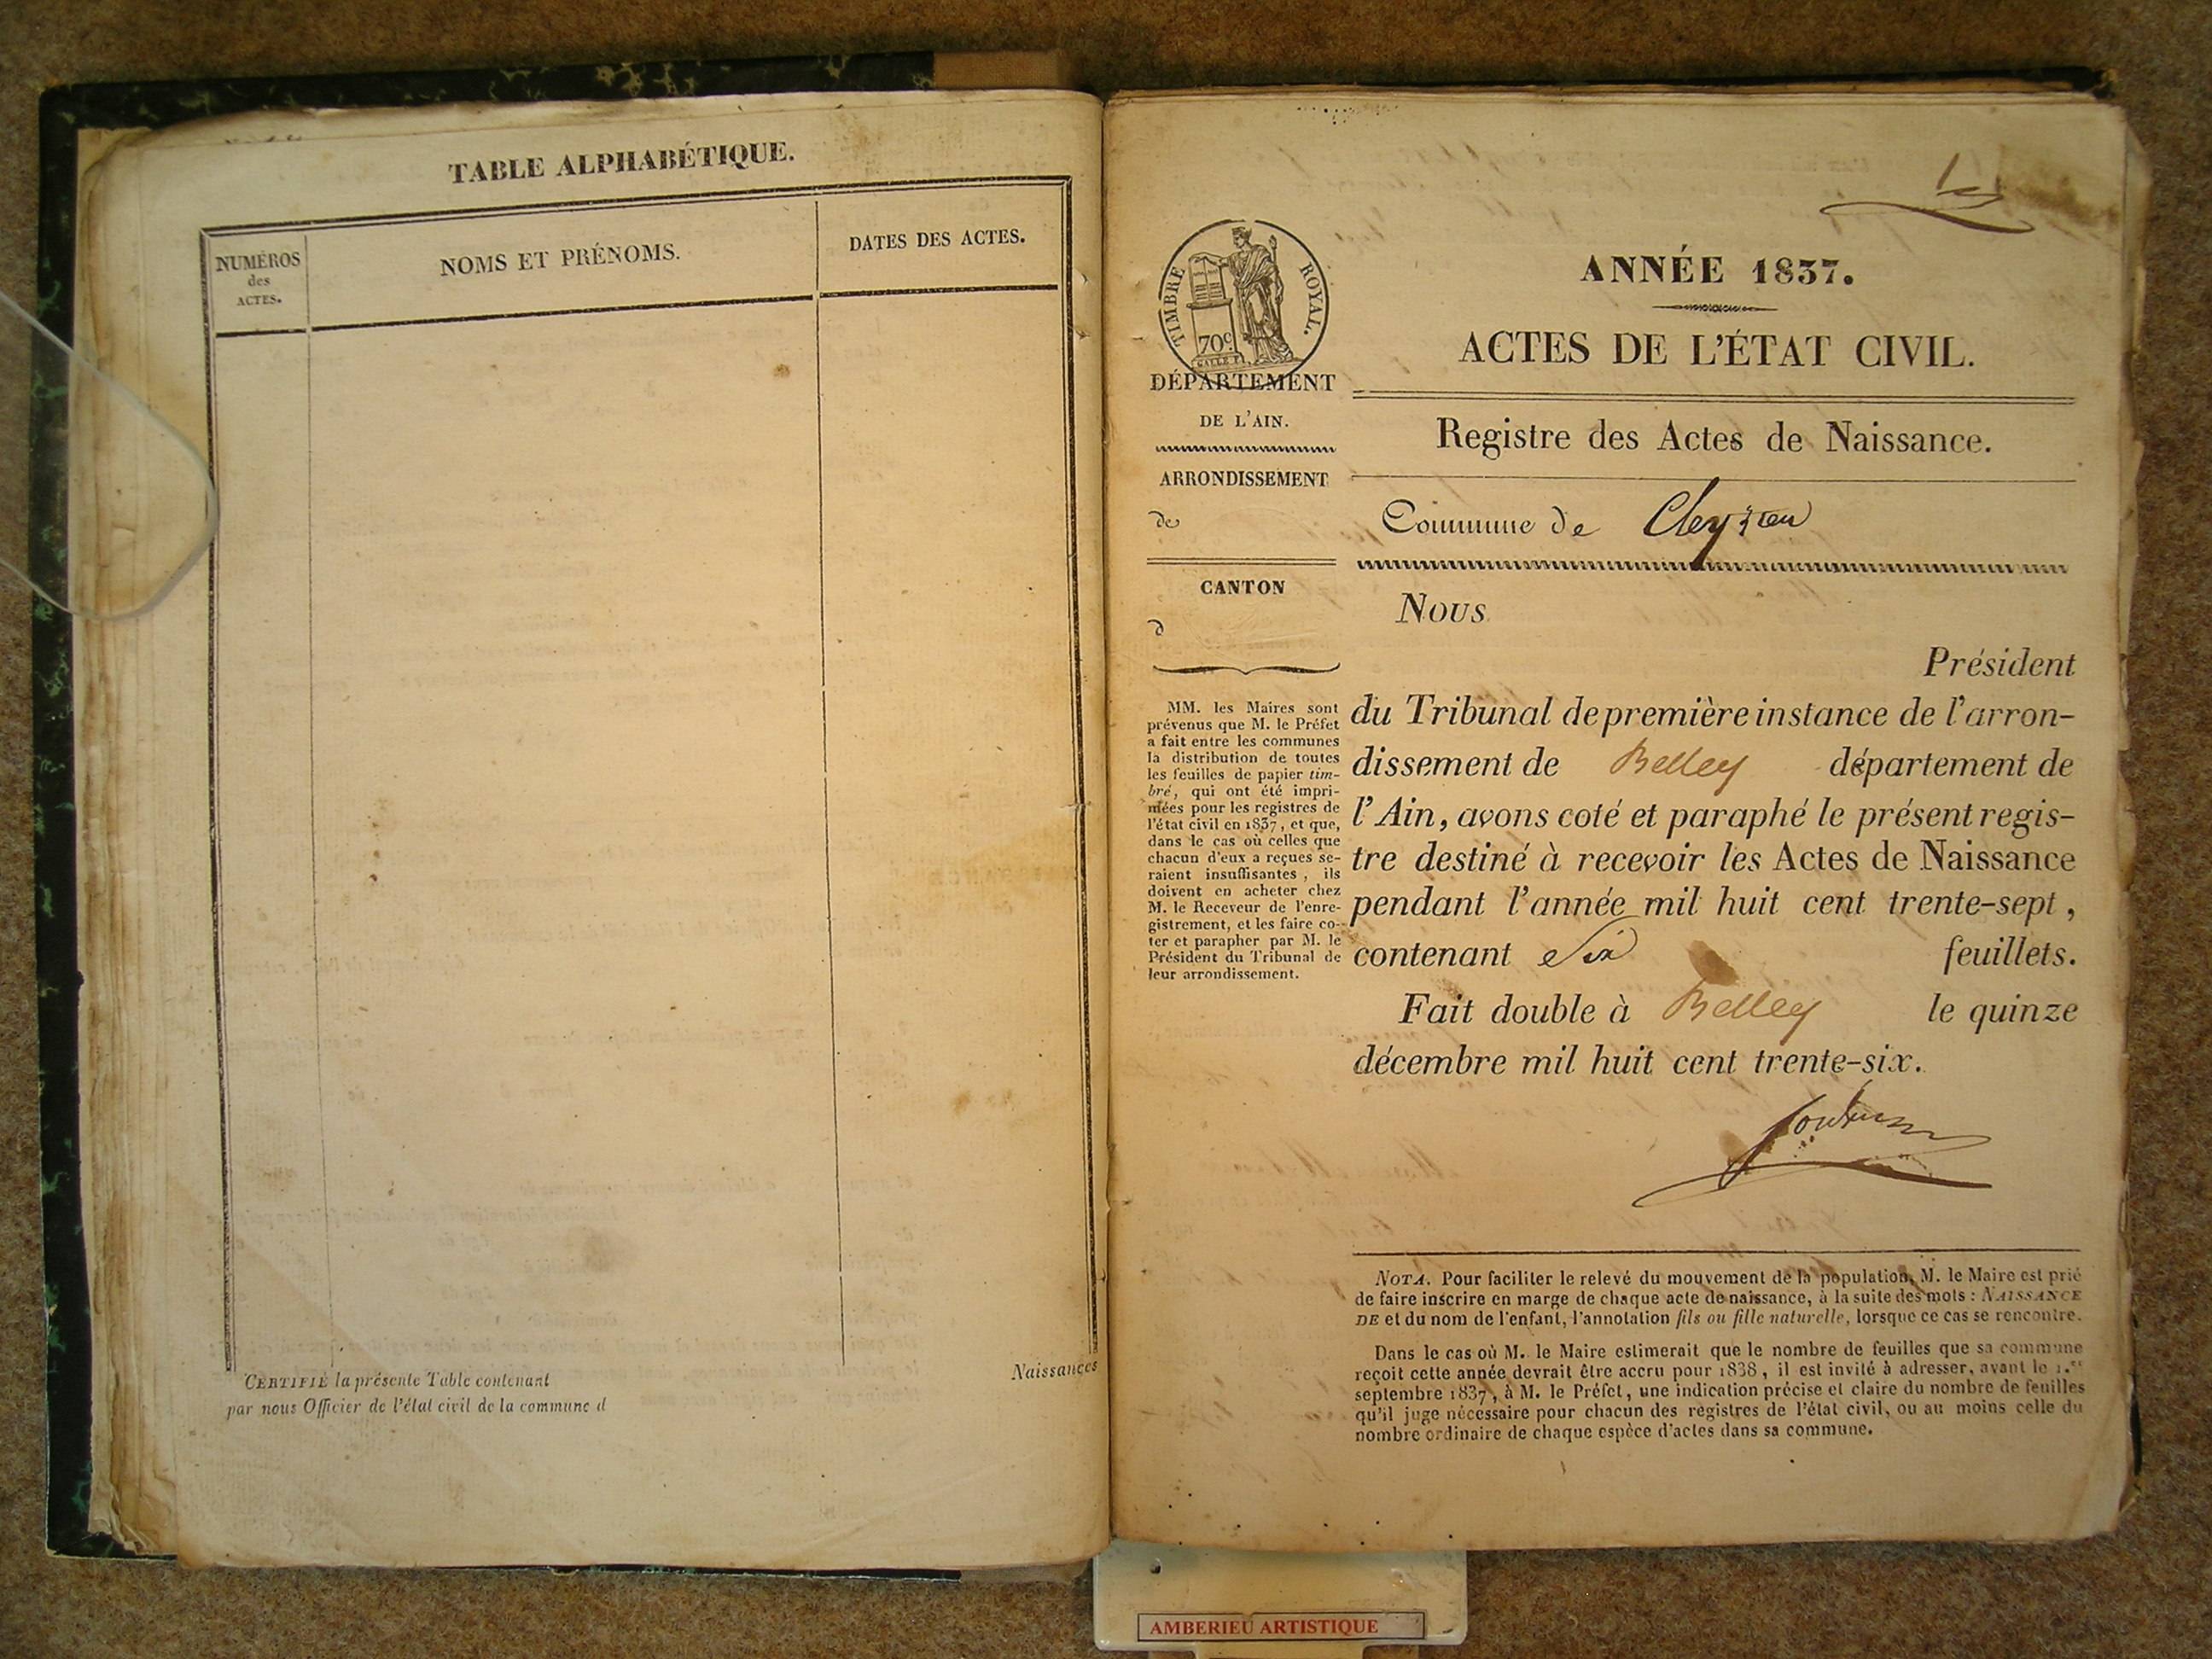 TABLE ALPHABÉTIQUE.
NUMÉROS
des
ACTES.
NOMS ET PRÉNOMS.
DATES DES ACTES.
CERTIFIÉ la présente Table contenant
par nous Officier de l'état civil de la commune d
Naissances
1
TIMBRE ROYAL.
70c
DÉPARTEMENT
DE L'AIN.
ARRONDISSEMENT
de
CANTON
d
MM. les Maires sont
prévenus que M. le Préfet
a fait entre les communes
la distribution de toutes
les feuilles de papier tim-
bré, qui ont été impri-
mées pour les registres de
l'état civil en 1837, et que,
dans le cas où celles que
chacun d'eux a reçues se-
raient insuffisantes, ils
doivent en acheter chez
M. le Receveur de l'enre-
gistrement, et les faire co-
ter et parapher par M. le
Président du Tribunal de
leur arrondissement.
ANNÉE 1837.
ACTES DE L'ÉTAT CIVIL.
Registre des Actes de Naissance.
Commune de Cleyzieu
Nous
Président
du Tribunal de première instance de l'arron-
dissement de Belley département de
l'Ain, avons coté et paraphé le présent regis-
tre destiné à recevoir les Actes de Naissance
pendant l'année mil huit cent trente-sept,
contenant Six feuillets.
Fait double à Belley le quinze
décembre mil huit cent trente-six.
NOTA. Pour faciliter le relevé du mouvement de la population, M. le Maire est prié
de faire inscrire en marge de chaque acte de naissance, à la suite des mots : NAISSANCE
DE et du nom de l'enfant, l'annotation fils ou fille naturelle, lorsque ce cas se rencontre.
Dans le cas où M. le Maire estimerait que le nombre de feuilles que sa commune
reçoit cette année devrait être accru pour 1838, il est invité à adresser, avant le 1.er
septembre 1837, à M. le Préfet, une indication précise et claire du nombre de feuilles
qu'il juge nécessaire pour chacun des registres de l'état civil, ou au moins celle du
nombre ordinaire de chaque espèce d'actes dans sa commune.
AMBERIEU ARTISTIQUE